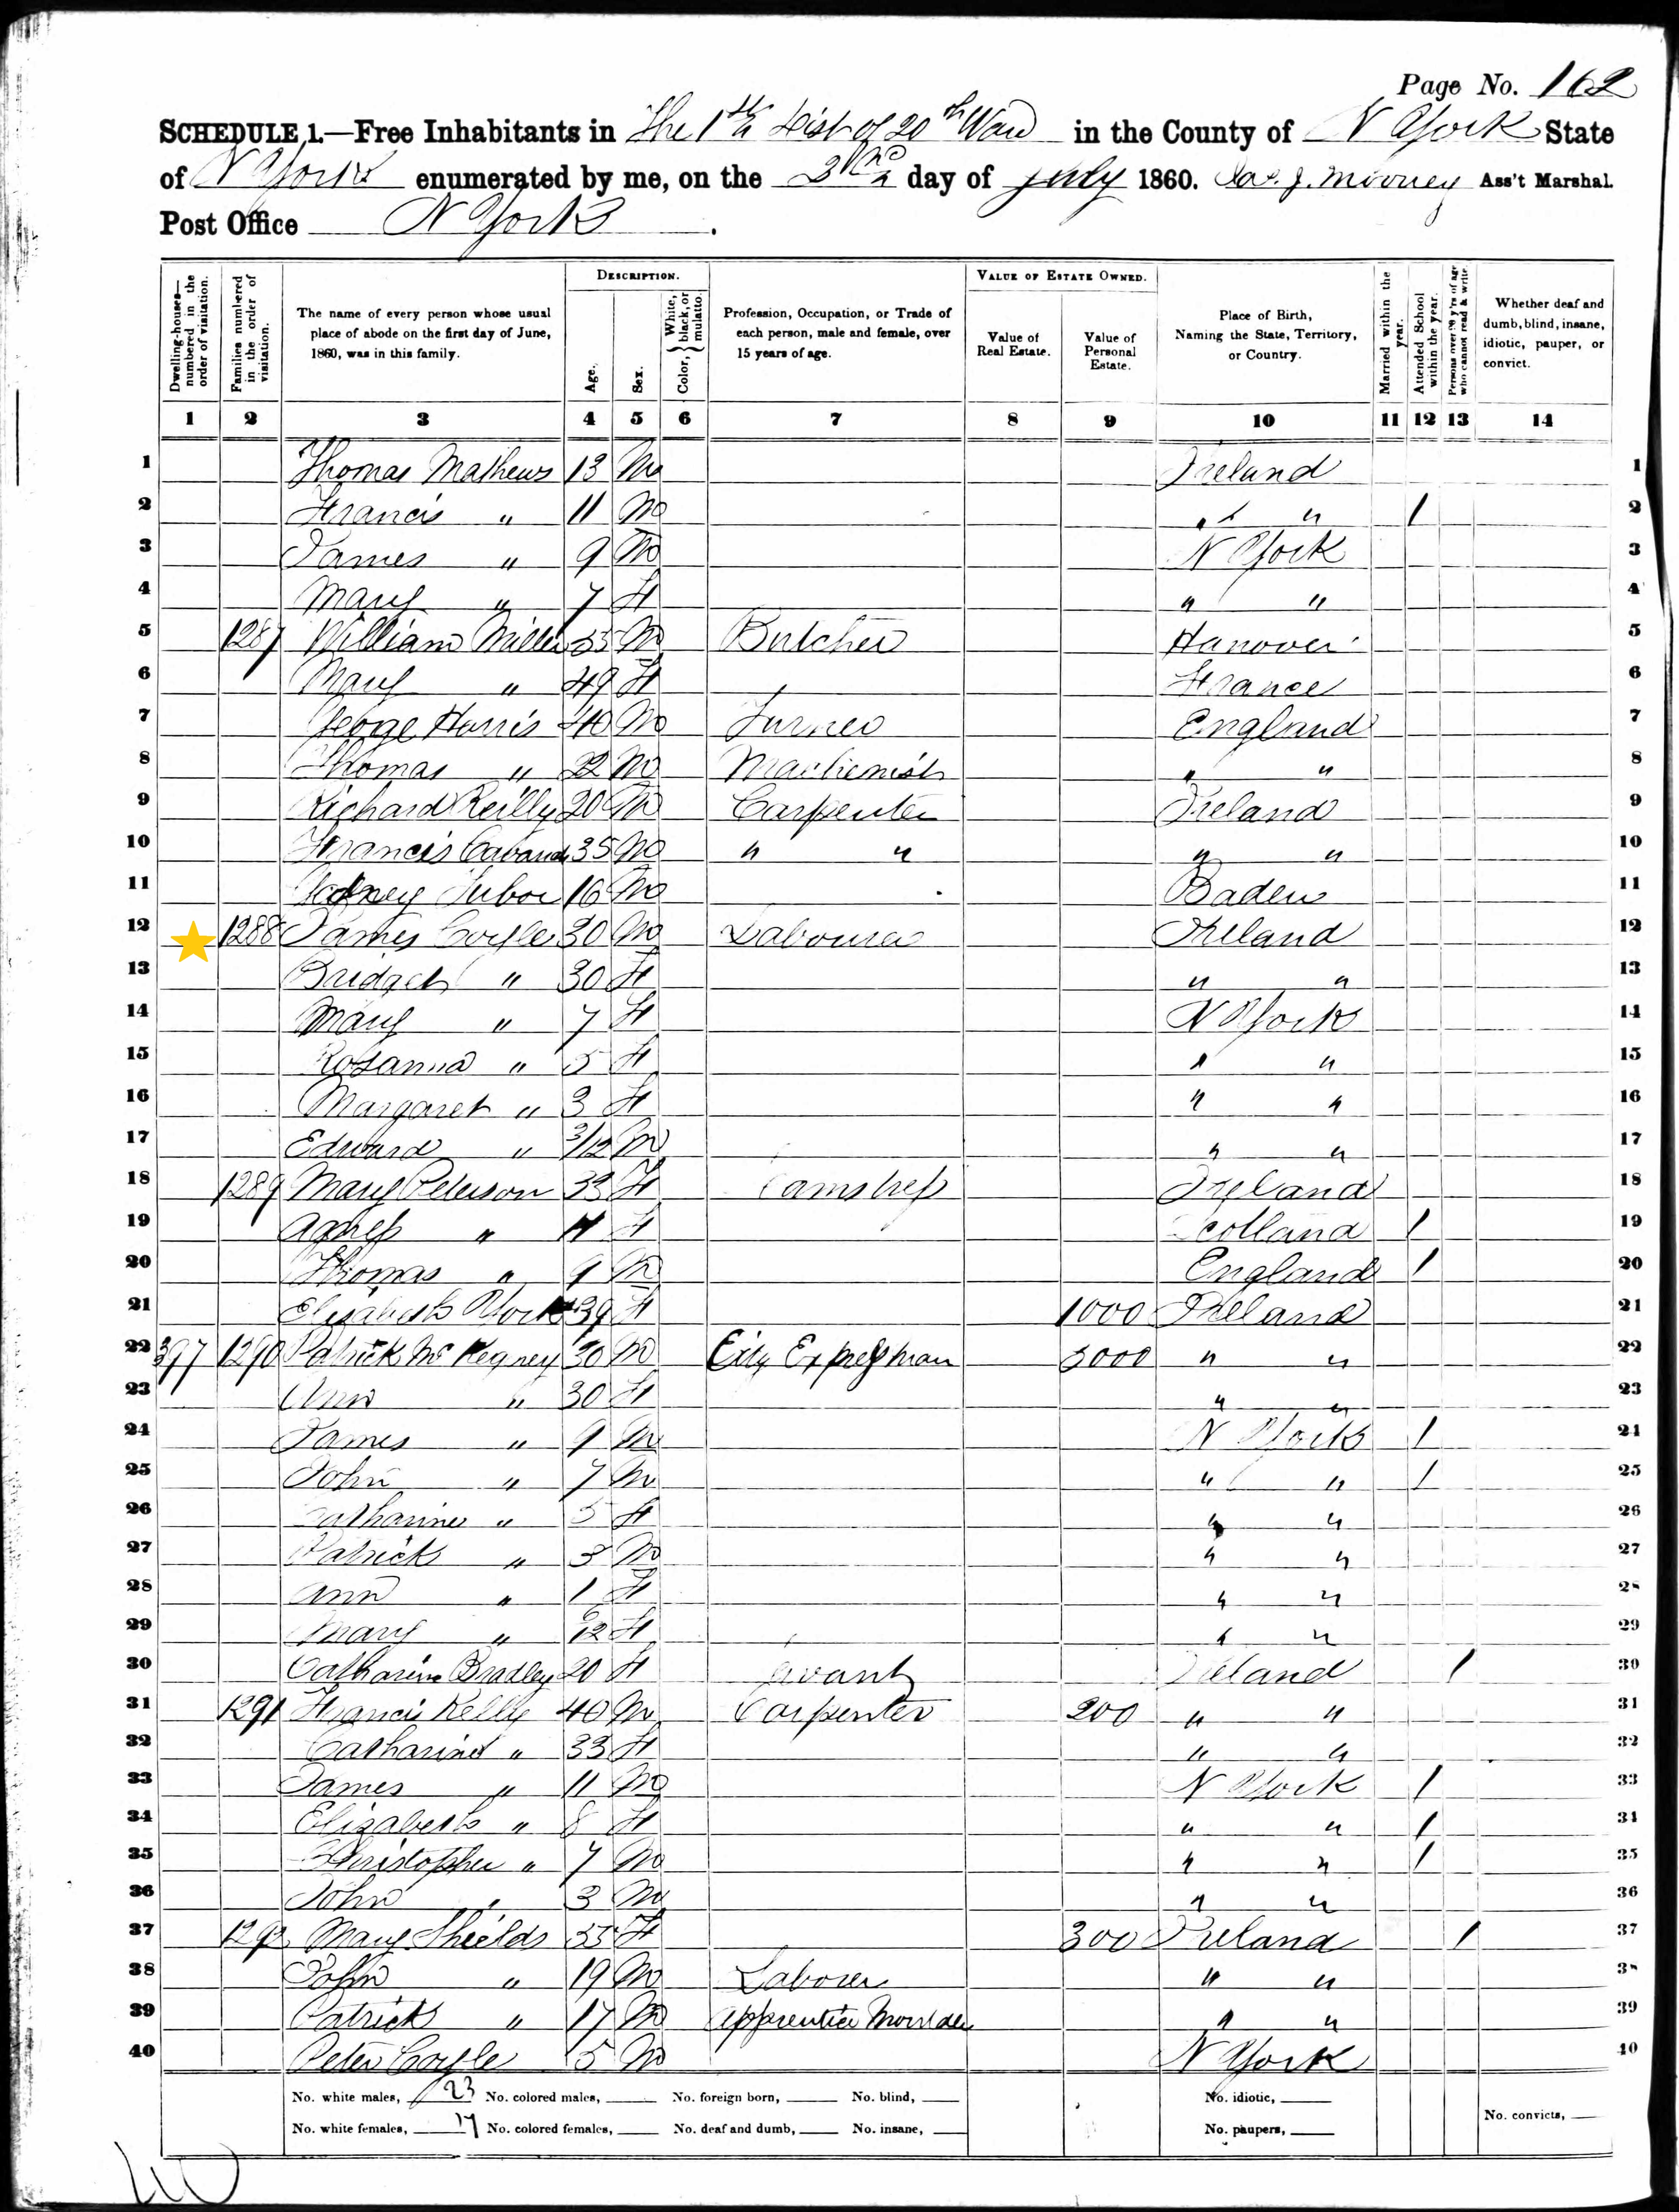 Page No. 162
SCHEDULE 1.—Free Inhabitants in The 1st Dist of 20th Ward in the County of N York State
of N York enumerated by me, on the 2nd day of July 1860. Jas. J. Mooney Ass't Marshal.
Post Office N York.
Dwelling-houses—numbered in the order of visitation.
Families numbered in the order of visitation.
The name of every person whose usual place of abode on the first day of June, 1860, was in this family.
DESCRIPTION.
Age.
Sex.
Color, White, black, or mulatto.
Profession, Occupation, or Trade of each person, male and female, over 15 years of age.
VALUE OF ESTATE OWNED.
Value of Real Estate.
Value of Personal Estate.
Place of Birth, Naming the State, Territory, or Country.
Married within the year.
Attended School within the year.
Persons over 20 y'rs of age who cannot read & write.
Whether deaf and dumb, blind, insane, idiotic, pauper, or convict.
1 2 3 4 5 6 7 8 9 10 11 12 13 14
1 Thomas Mathews 13 M Ireland 1
2 Francis " 11 M " " / 2
3 James " 9 M N York 3
4 Mary " 7 F " " 4
5 1287 William Miller M Butcher Hanover 5
6 Mary " 49 F France 6
7 Geoge Harris 40 M Turner England 7
8 Thomas " 22 M Machienist " " 8
9 Richard Reilly 20 M Carpenter Ireland 9
10 Francis 35 M " " " " 10
11 16 M Baden 11
12 1288 James Coyle 30 M Labourer Ireland 12
13 Bridget " 30 F " " 13
14 Mary " 7 F N York 14
15 Rosanna " 5 F " " 15
16 Margaret " 3 F " " 16
17 Edward " 3/12 M " " 17
18 1289 Mary Peterson 33 F Ireland 18
19 Agness " 11 F Scotland / 19
20 Thomas " 9 M England / 20
21 Elizabeth York 39 F 1000 Ireland 21
22 397 1290 Patrick Mc Kegney 30 M City Expressman 5000 " " 22
23 Ann " 30 F " " 23
24 James " 9 M N York / 24
25 John " 7 M " " / 25
26 Catharine " 5 F " " 26
27 Patrick " 3 M " " 27
28 Ann " 1 F " " 28
29 Mary " F " " 29
30 Catharine Bradley 20 F Ireland / 30
31 1291 Francis Kelly 40 M Carpenter 200 " " 31
32 Catharine " 33 F " " 32
33 James " 11 M N York / 33
34 Elizabeth " 8 F " " / 34
35 Christopher " 7 M " " / 35
36 John " 3 M " " 36
37 1292 Mary Shields F 300 Ireland / 37
38 John " 19 M Laborer " " 38
39 Patrick " 17 M Apprentice Moulder " " 39
40 Peter Coyle 5 M N York 40
No. white males, 23 No. colored males, No. foreign born, No. blind, No. idiotic,
No. white females, 17 No. colored females, No. deaf and dumb, No. insane, No. paupers, No. convicts,